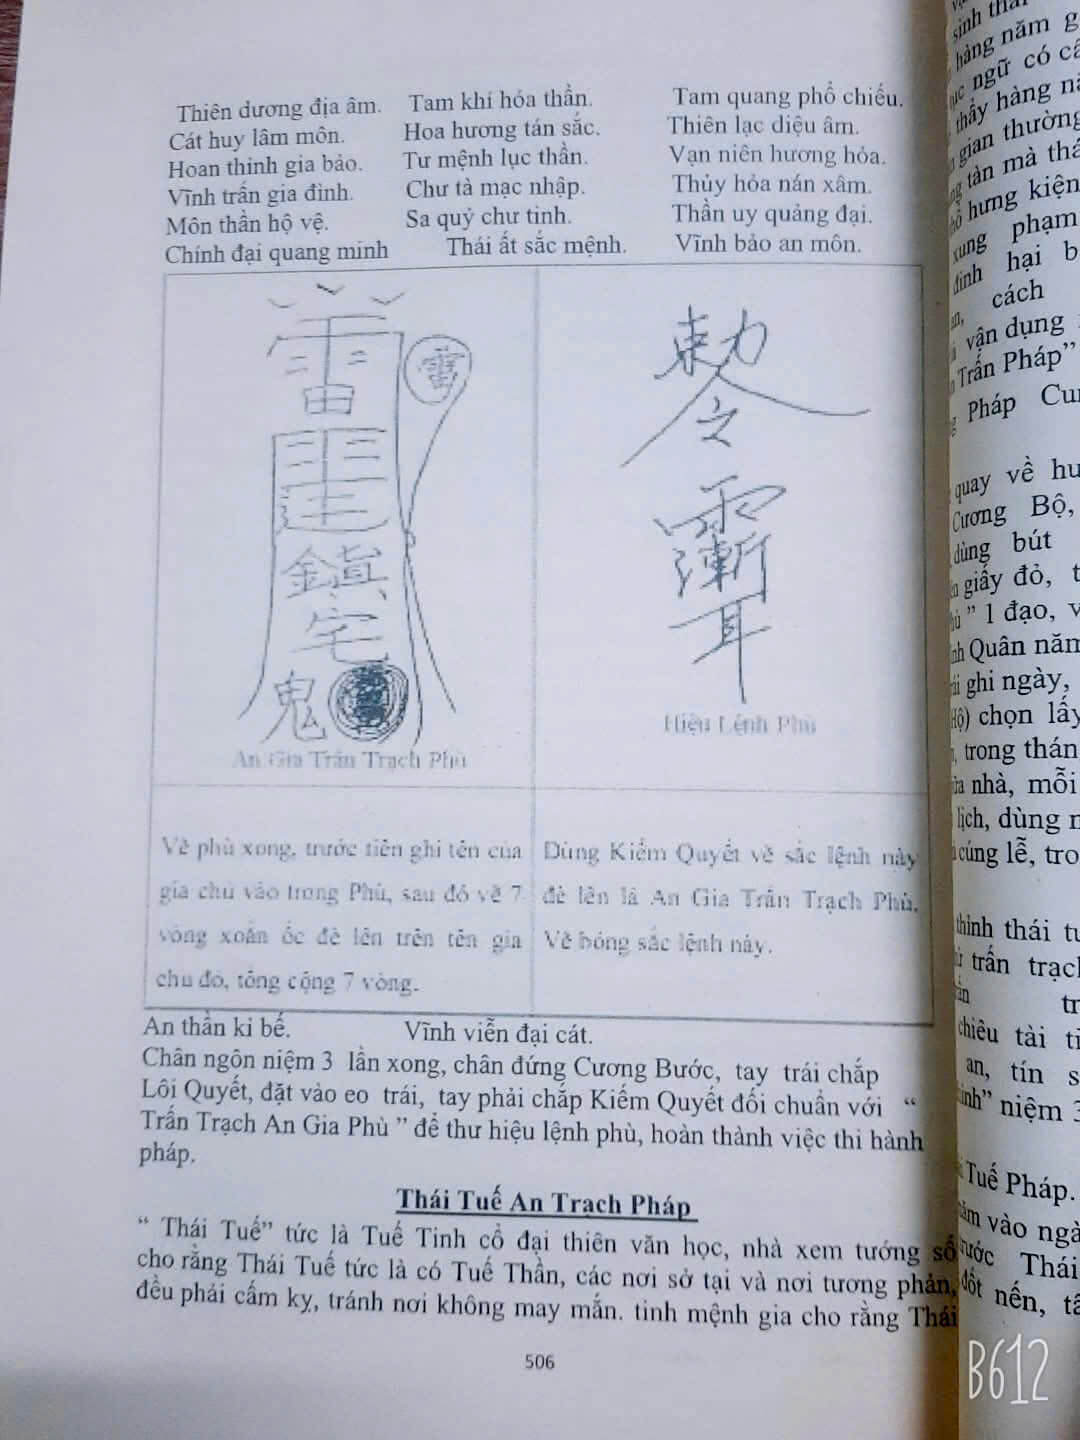 Thiên dương địa âm. Tam khí hóa thần. Tam quang phổ chiếu.
Cát huy lâm môn. Hoa hương tán sắc. Thiên lạc diệu âm.
Hoan thinh gia bảo. Tư mệnh lục thần. Vạn niên hương hỏa.
Vĩnh trấn gia đình. Chư tà mạc nhập. Thủy hỏa nán xâm.
Môn thần hộ vệ. Sa quỷ chư tinh. Thần uy quảng đại.
Chính đại quang minh Thái ất sắc mệnh. Vĩnh bảo an môn.
雷
雷
鎮
宅
鬼
An Gia Trấn Trạch Phù
敕
令
漸
耳
Hiệu Lệnh Phù
Vẽ phù xong, trước tiên ghi tên của
gia chủ vào trong Phù, sau đó vẽ 7
vòng xoắn ốc đè lên trên tên gia
chủ đó, tổng cộng 7 vòng.
Dùng Kiếm Quyết vẽ sắc lệnh này
đè lên lá An Gia Trấn Trạch Phù.
Vẽ bóng sắc lệnh này.
An thần kì bế. Vĩnh viễn đại cát.
Chân ngôn niệm 3 lần xong, chân đứng Cương Bước, tay trái chắp
Lôi Quyết, đặt vào eo trái, tay phải chắp Kiếm Quyết đối chuẩn với “
Trấn Trạch An Gia Phù ” để thư hiệu lệnh phù, hoàn thành việc thi hành
pháp.
Thái Tuế An Trạch Pháp
“ Thái Tuế” tức là Tuế Tinh cổ đại thiên văn học, nhà xem tướng số
cho rằng Thái Tuế tức là có Tuế Thần, các nơi sở tại và nơi tương phản,
đều phải cấm kỵ, tránh nơi không may mắn. tinh mệnh gia cho rằng Thái
506
sinh thái
hàng năm
ngữ có
thầy hàng
gian thường
tàn mà
hưng kiện
xung phạm
đình hại
cách
vận dụng
Trấn Pháp”
Pháp
quay về
Cương Bộ,
dùng bút
giấy đỏ,
” 1 đạo,
Quân năm
ghi ngày,
chọn lấy
trong
nhà, mỗi
lịch, dùng
cúng lễ,
thỉnh thái
trấn
chiêu tài
an, tín
” niệm 3
Tuế Pháp.
vào
Thái
đốt nến,
B612